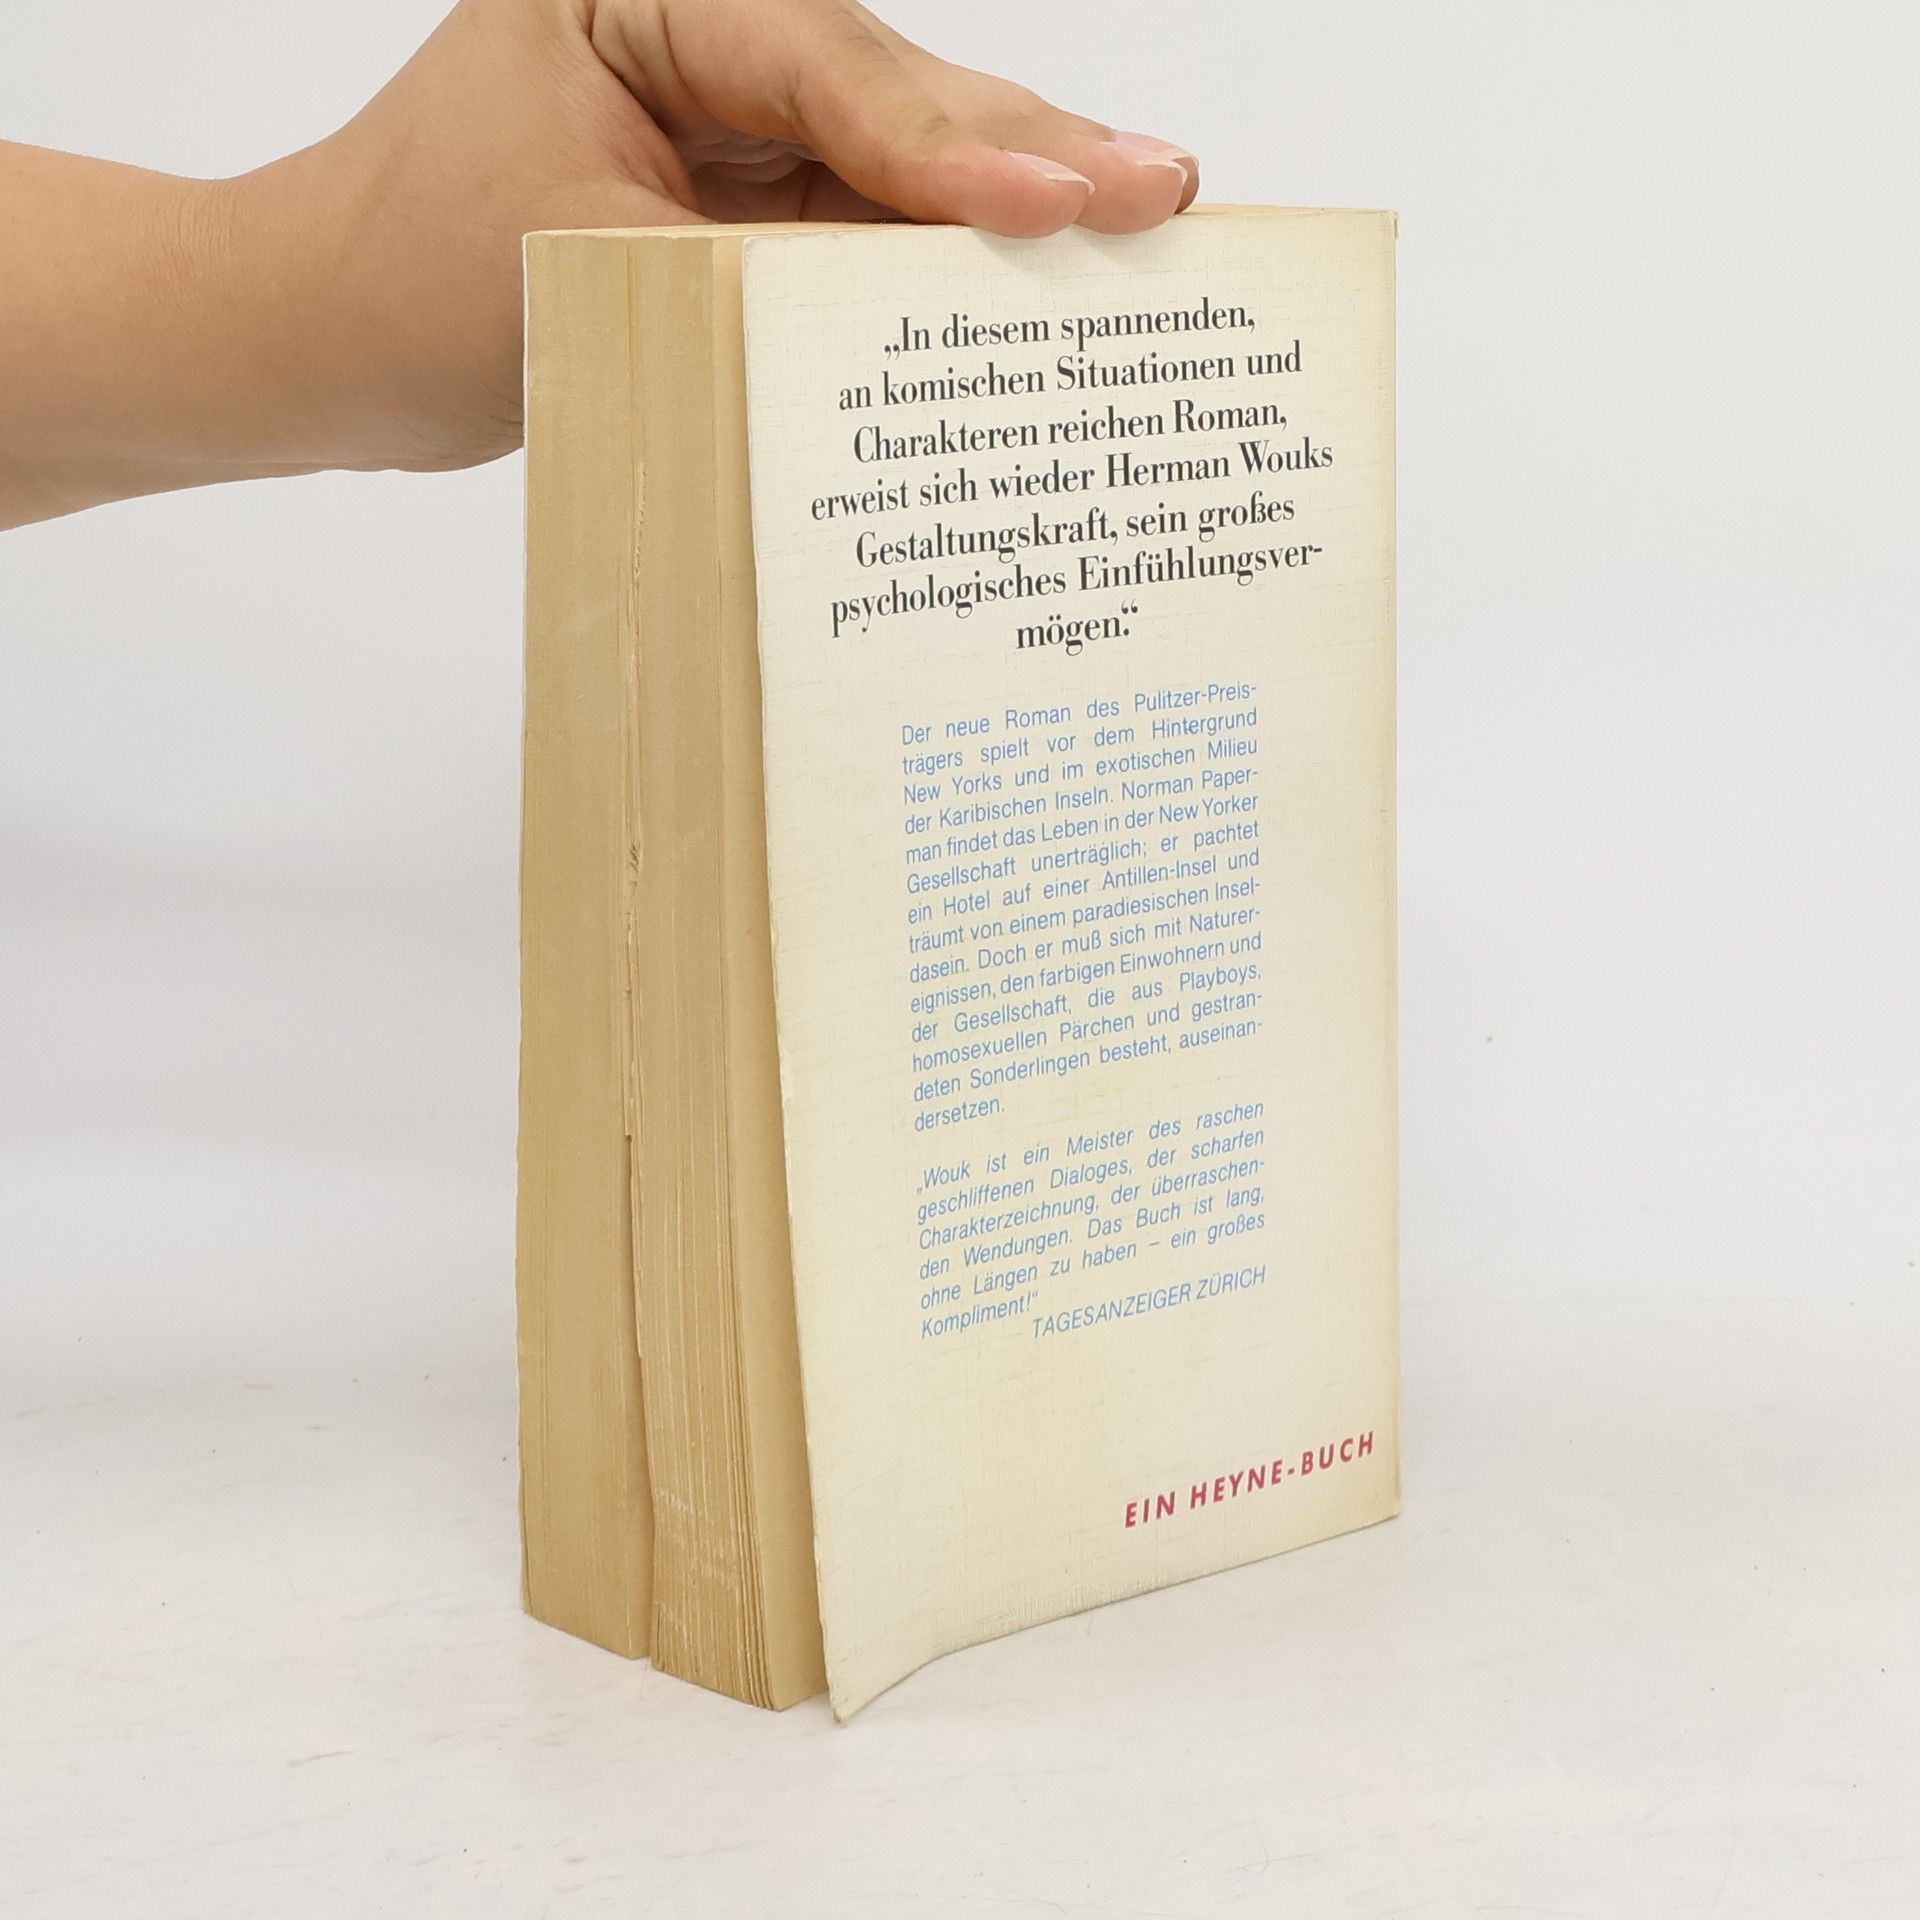 „In diesem spannenden,
an komischen Situationen und
Charakteren reichen Roman,
erweist sich wieder Herman Wouks
Gestaltungskraft, sein großes
psychologisches Einfühlungsver-
mögen.“
Der neue Roman des Pulitzer-Preis-
trägers spielt vor dem Hintergrund
New Yorks und im exotischen Milieu
der Karibischen Inseln. Norman Paper-
man findet das Leben in der New Yorker
Gesellschaft unerträglich; er pachtet
ein Hotel auf einer Antillen-Insel und
träumt von einem paradiesischen Insel-
dasein. Doch er muß sich mit Naturer-
eignissen, den farbigen Einwohnern und
der Gesellschaft, die aus Playboys,
homosexuellen Pärchen und gestran-
deten Sonderlingen besteht, auseinan-
dersetzen.
„Wouk ist ein Meister des raschen
geschliffenen Dialoges, der scharfen
Charakterzeichnung, der überraschen-
den Wendungen. Das Buch ist lang,
ohne Längen zu haben – ein großes
Kompliment!“
TAGESANZEIGER ZÜRICH
EIN HEYNE-BUCH